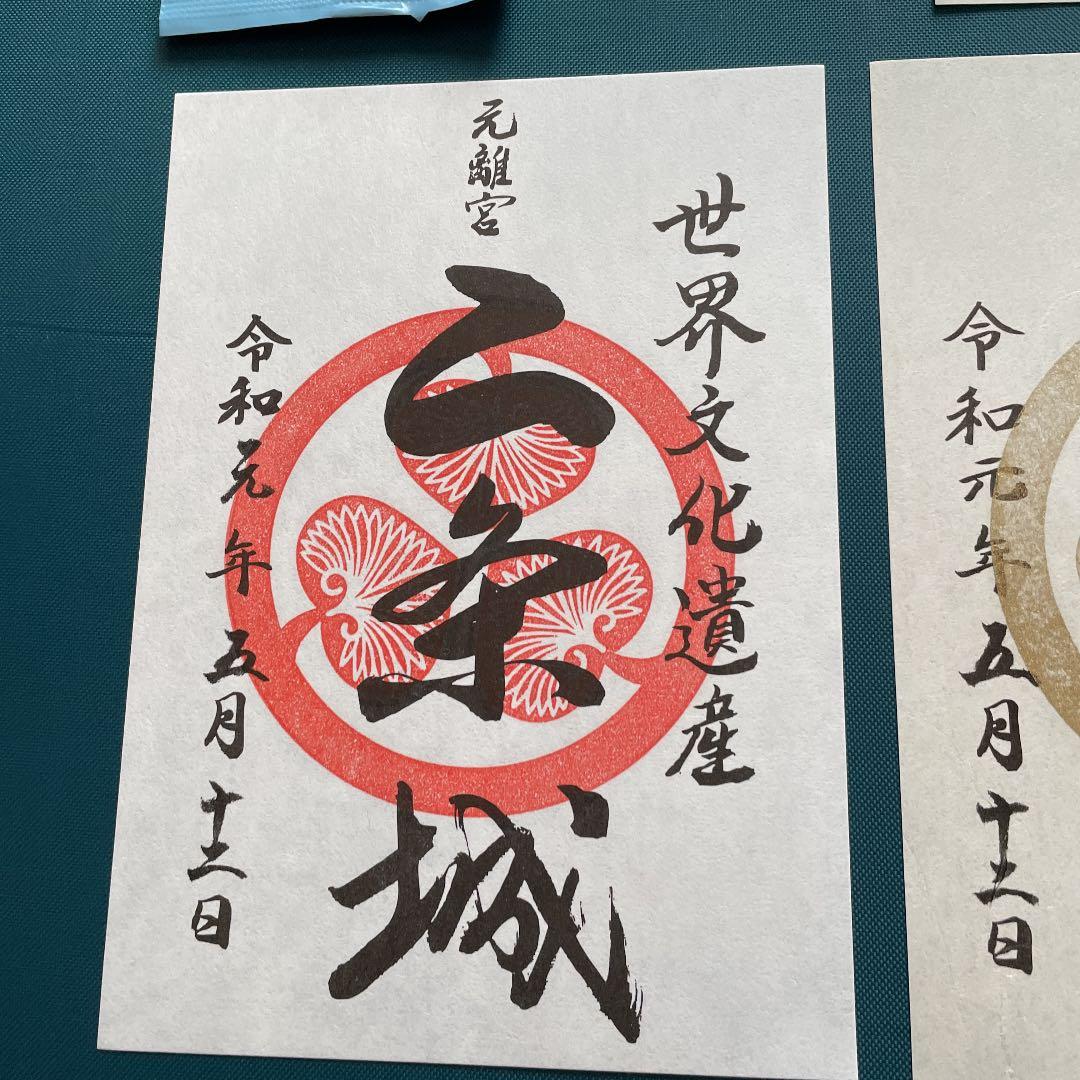 世界文化遺産
元離宮
二条城
令和元年 五月十二日
令和元年 五月十二日